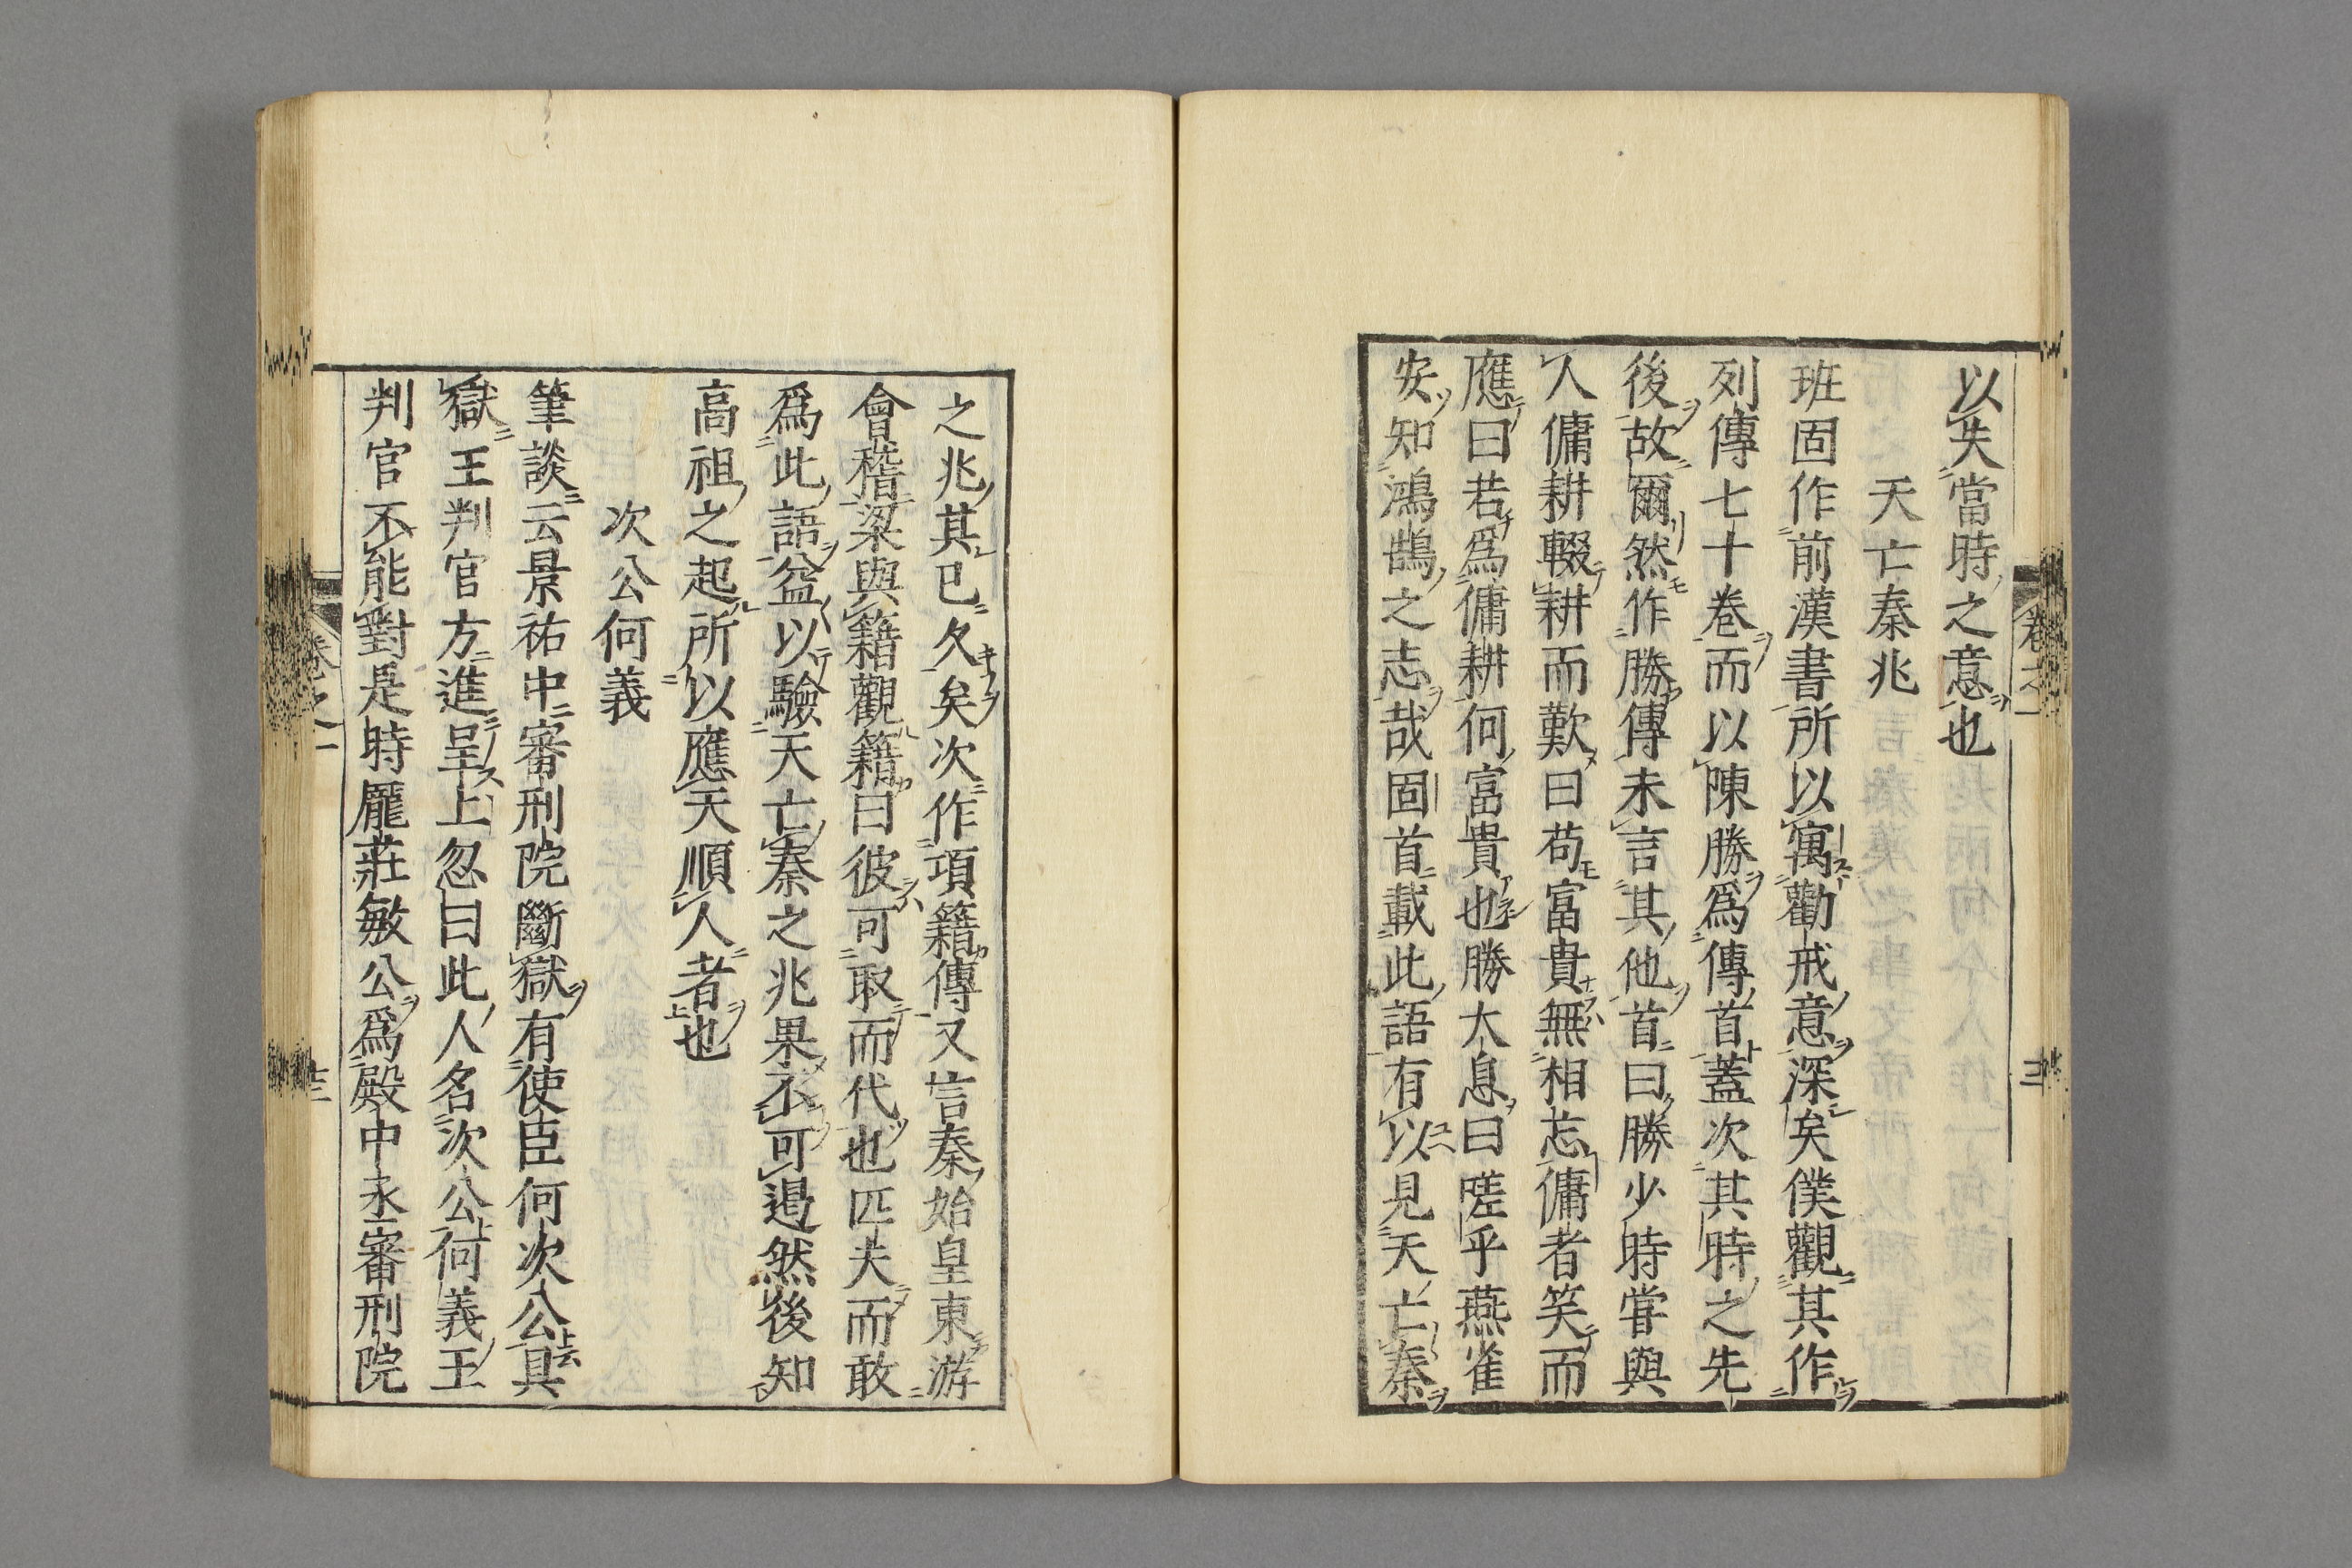 以失當時之意也
天亡秦兆
班固作前漢書所以寓勸戒意深矣僕觀其作
列傳七十卷而以陳勝爲傳首蓋次其時之先
後故爾然作勝傳未言其他首曰勝少時甞與
人傭耕輟耕而歎曰苟富貴無相忘傭者笑而
應曰若爲傭耕何富貴也勝大息曰嗟乎燕雀
安知鴻鵠之志哉固首載此語有以見天亡秦
之兆其已久矣次作項籍傳又言秦始皇東游
會稽梁與籍觀籍曰彼可取而代也匹夫而敢
爲此語益以驗天亡秦之兆果不可遏然後知
高祖之起所以應天順人者也
次公何義
筆談云景祐中審刑院斷獄有使臣何次公具
獄王判官方進呈上忽曰此人名次公何義王
判官不能對是時龎莊敏公爲殿中丞審刑院
卷之一